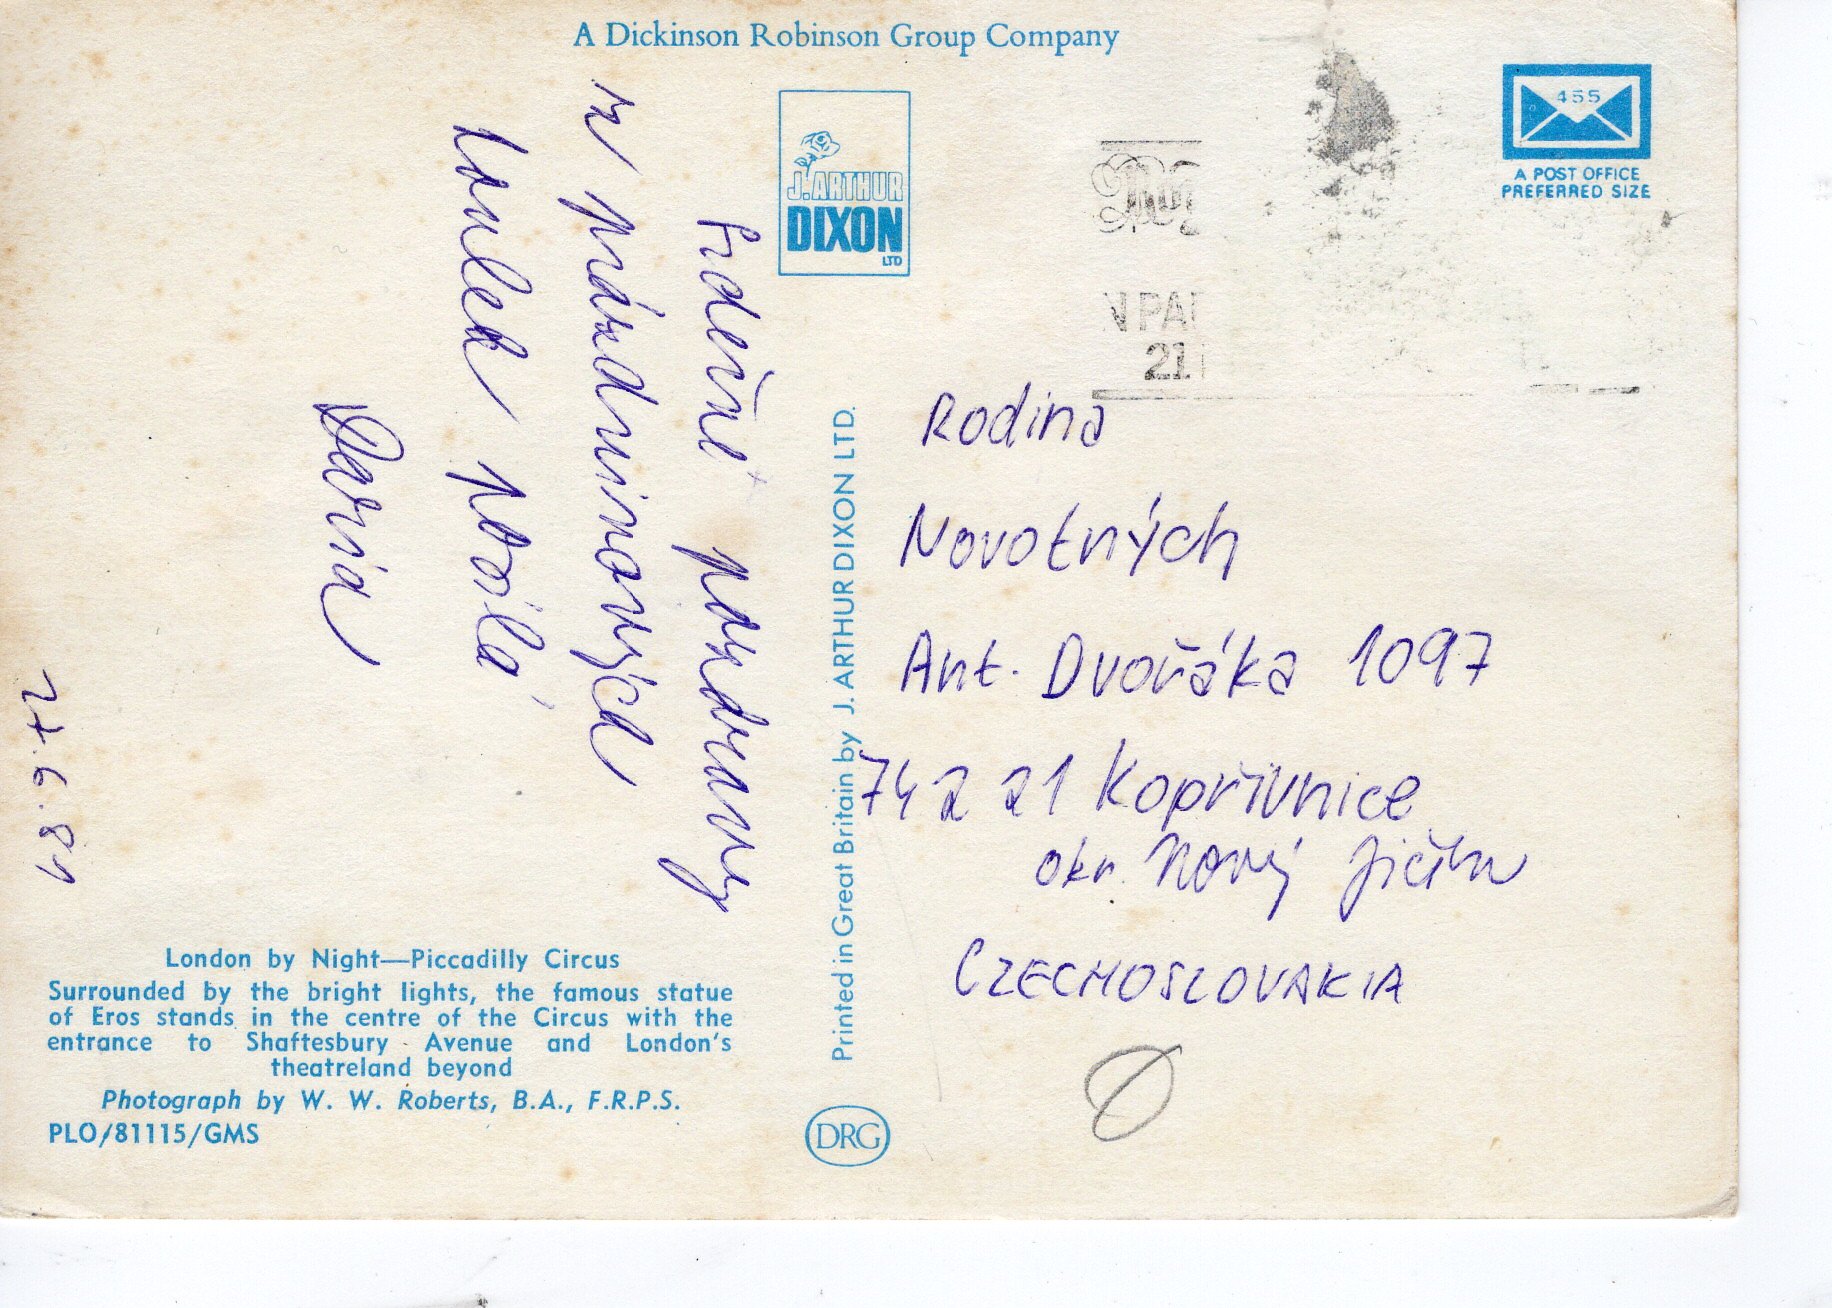 A Dickinson Robinson Group Company
J. ARTHUR
DIXON
LTD
455
A POST OFFICE
PREFERRED SIZE
N PA
21
Srdečné pozdravy
z prázdninových
toulek posílá
Darina
27.6.81
Printed in Great Britain by J. ARTHUR DIXON LTD.
Rodina
Novotných
Ant. Dvořáka 1097
742 21 Kopřivnice
okr. Nový Jičín
CZECHOSLOVAKIA
London by Night—Piccadilly Circus
Surrounded by the bright lights, the famous statue
of Eros stands in the centre of the Circus with the
entrance to Shaftesbury Avenue and London's
theatreland beyond
Photograph by W. W. Roberts, B.A., F.R.P.S.
PLO/81115/GMS
DRG